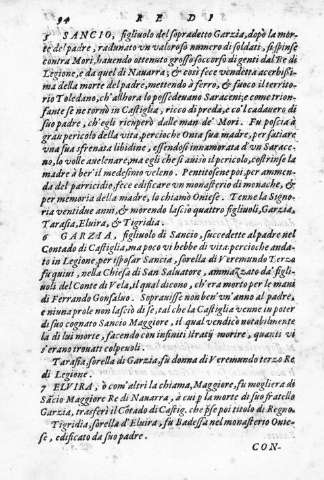 94 RE DI
5 SANCIO, figliuolo del sopradetto Garzia, dopò la mor-
te del padre, radunato vn valoroso numero di soldati, si spinse
contra Mori, hauendo ottenuto grosso soccorso di genti dal Re di
Legione, e da quel di Nauarra; & così fece vendetta acerbissi-
ma della morte del padre, mettendo à ferro, & fuoco il territo-
rio Toledano, ch'allhora lo possedeuano Saracini; e come trion-
fante se ne tornò in Castiglia, ricco di preda, e co'l cadauero di
suo padre, ch'egli ricuperò dalle man de' Mori. Fu poscia à
gran pericolo della vita, percioche Onia sua madre, per satiare
vna sua sfrenata libidine, essendosi innamorata d'vn Sarace-
no, lo volle auelenare, ma egli che si auisò il pericolo, costrinse la
madre à ber'il medesimo veleno. Pentitosene poi, per ammen-
da del parricidio, fece edificare vn monasterio di monache, &
per memoria della madre, lo chiamò Oniese. Tenne la Signo-
ria ventidue anni, & morendo lasciò quattro figliuoli, Garzia,
Tarasia, Eluira, & Tigridia.
6 GARZIA, figliuolo di Sancio, succedette al padre nel
Contado di Castiglia, ma poco vi hebbe di vita: percioche anda-
to in Legione, per isposar Sancia, sorella di Veremundo Terzo
fu quiui, nella Chiesa di San Saluatore, ammazzato da' figli-
uoli del Conte di Vela, il qual dicono, ch'era morto per le mani
di Ferrando Gonsaluo. Soprauisse non ben'vn'anno al padre,
e niuna prole non lasciò di se, tal che la Castiglia venne in poter
di suo cognato Sancio Maggiore, il qual vendicò notabilmente
la di lui morte, facendo con infiniti stratij morire, quanti vi
s'erano trouati colpeuoli.
Tarasia, sorella di Garzia, fu donna di Veremundo terzo Re
di Legione.
7 ELVIRA, ò com'altri la chiama, Maggiore, fu mogliera di
Sãcio Maggiore Re di Nauarra, à cui p la morte di suo fratello
Garzia, trasferì il Cõtado di Castig. che p̃se poi titolo di Regno.
Tigridia, sorella d'Eluira, fu Badessa nel monasterio Onie-
se, edificato da suo padre.
CON-